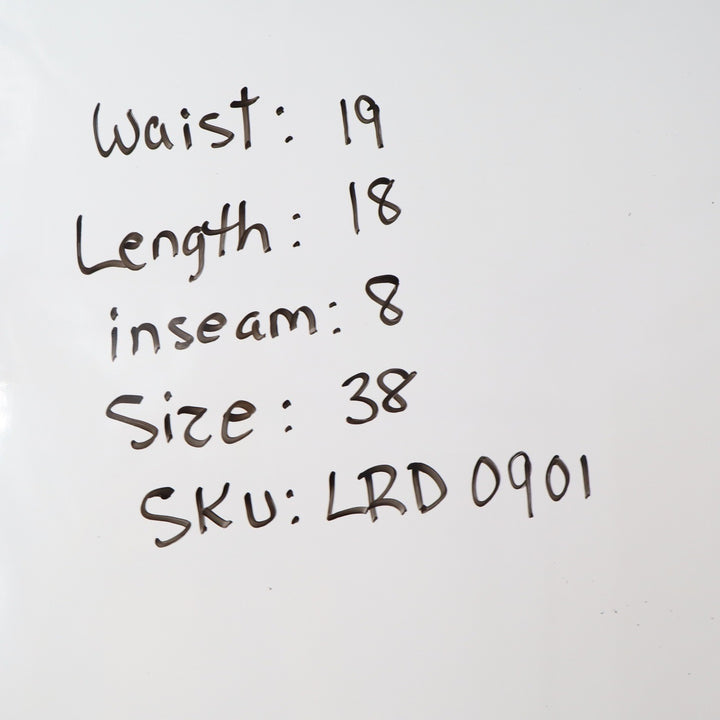 Waist: 19
Length: 18
inseam: 8
Size: 38
SKU: LRD 0901